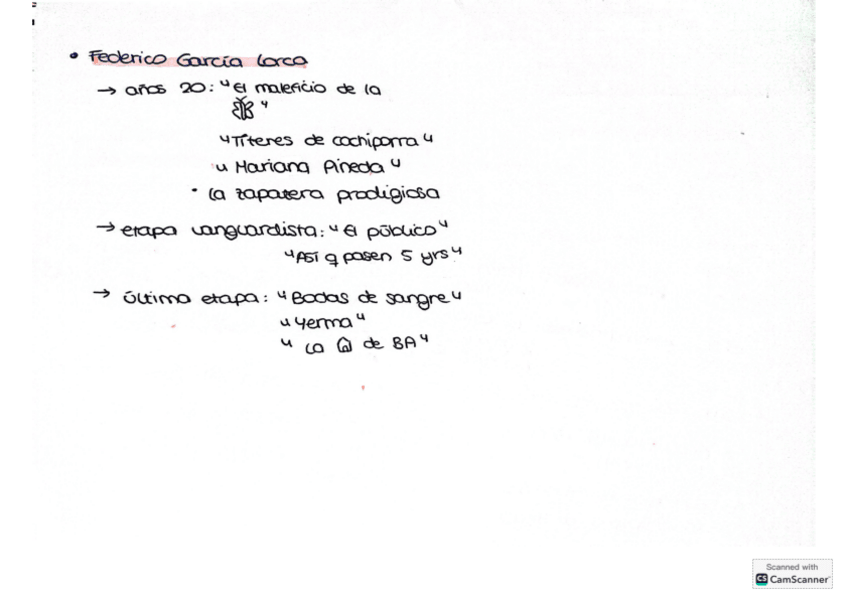 • Federico García Lorca
→ años 20: "El maleficio de la
"
"Títeres de cachiporra"
"Mariana Pineda"
• La zapatera prodigiosa
→ etapa vanguardista: "El público"
"Así q pasen 5 yrs"
→ última etapa: "Bodas de sangre"
"Yerma"
"La de BA"
Scanned with
CS CamScanner